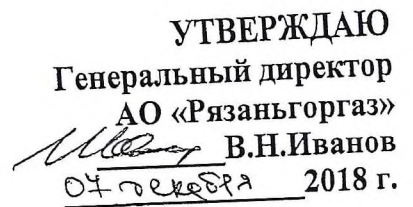 УТВЕРЖДАЮ
Генеральный директор
АО «Рязаньгоргаз»
В.Н.Иванов
07 декабря 2018 г.